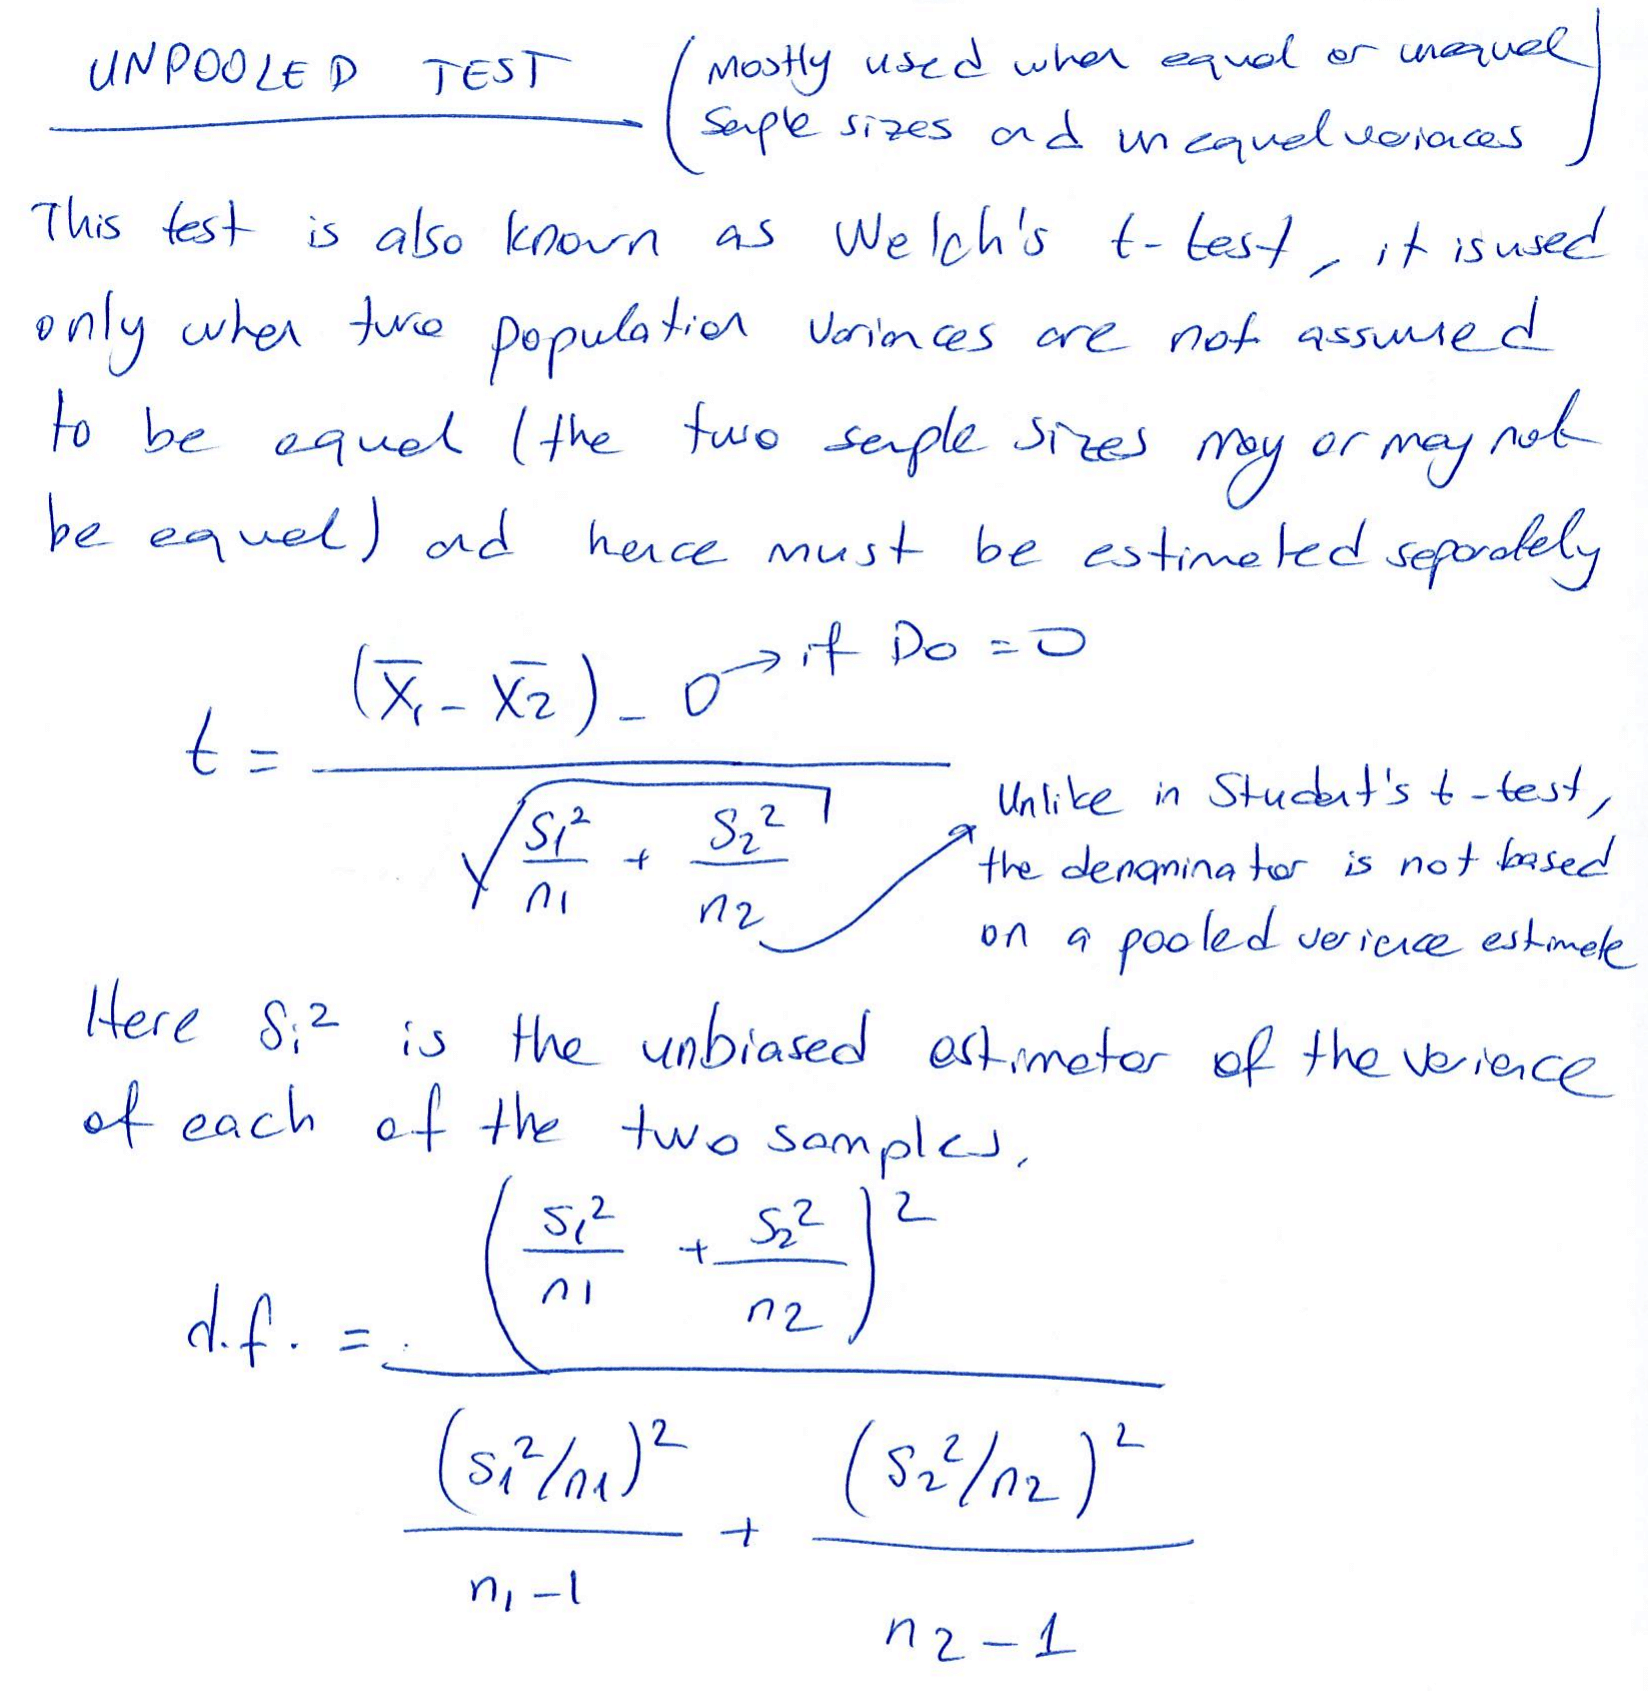 UNPOOLED TEST (Mostly used when equal or unequal
sample sizes and unequal variances)
This test is also known as Welch's t-test, it is used
only when two population variances are not assumed
to be equal (the two sample sizes may or may not
be equal) and hence must be estimated separately
t = ((x̄₁ - x̄₂) - 0) / √(s₁²/n₁ + s₂²/n₂)
→ if Do = 0
Unlike in Student's t-test,
the denominator is not based
on a pooled variance estimate
Here sᵢ² is the unbiased estimator of the variance
of each of the two samples.
d.f. = (s₁²/n₁ + s₂²/n₂)² / ((s₁²/n₁)²/(n₁-1) + (s₂²/n₂)²/(n₂-1))